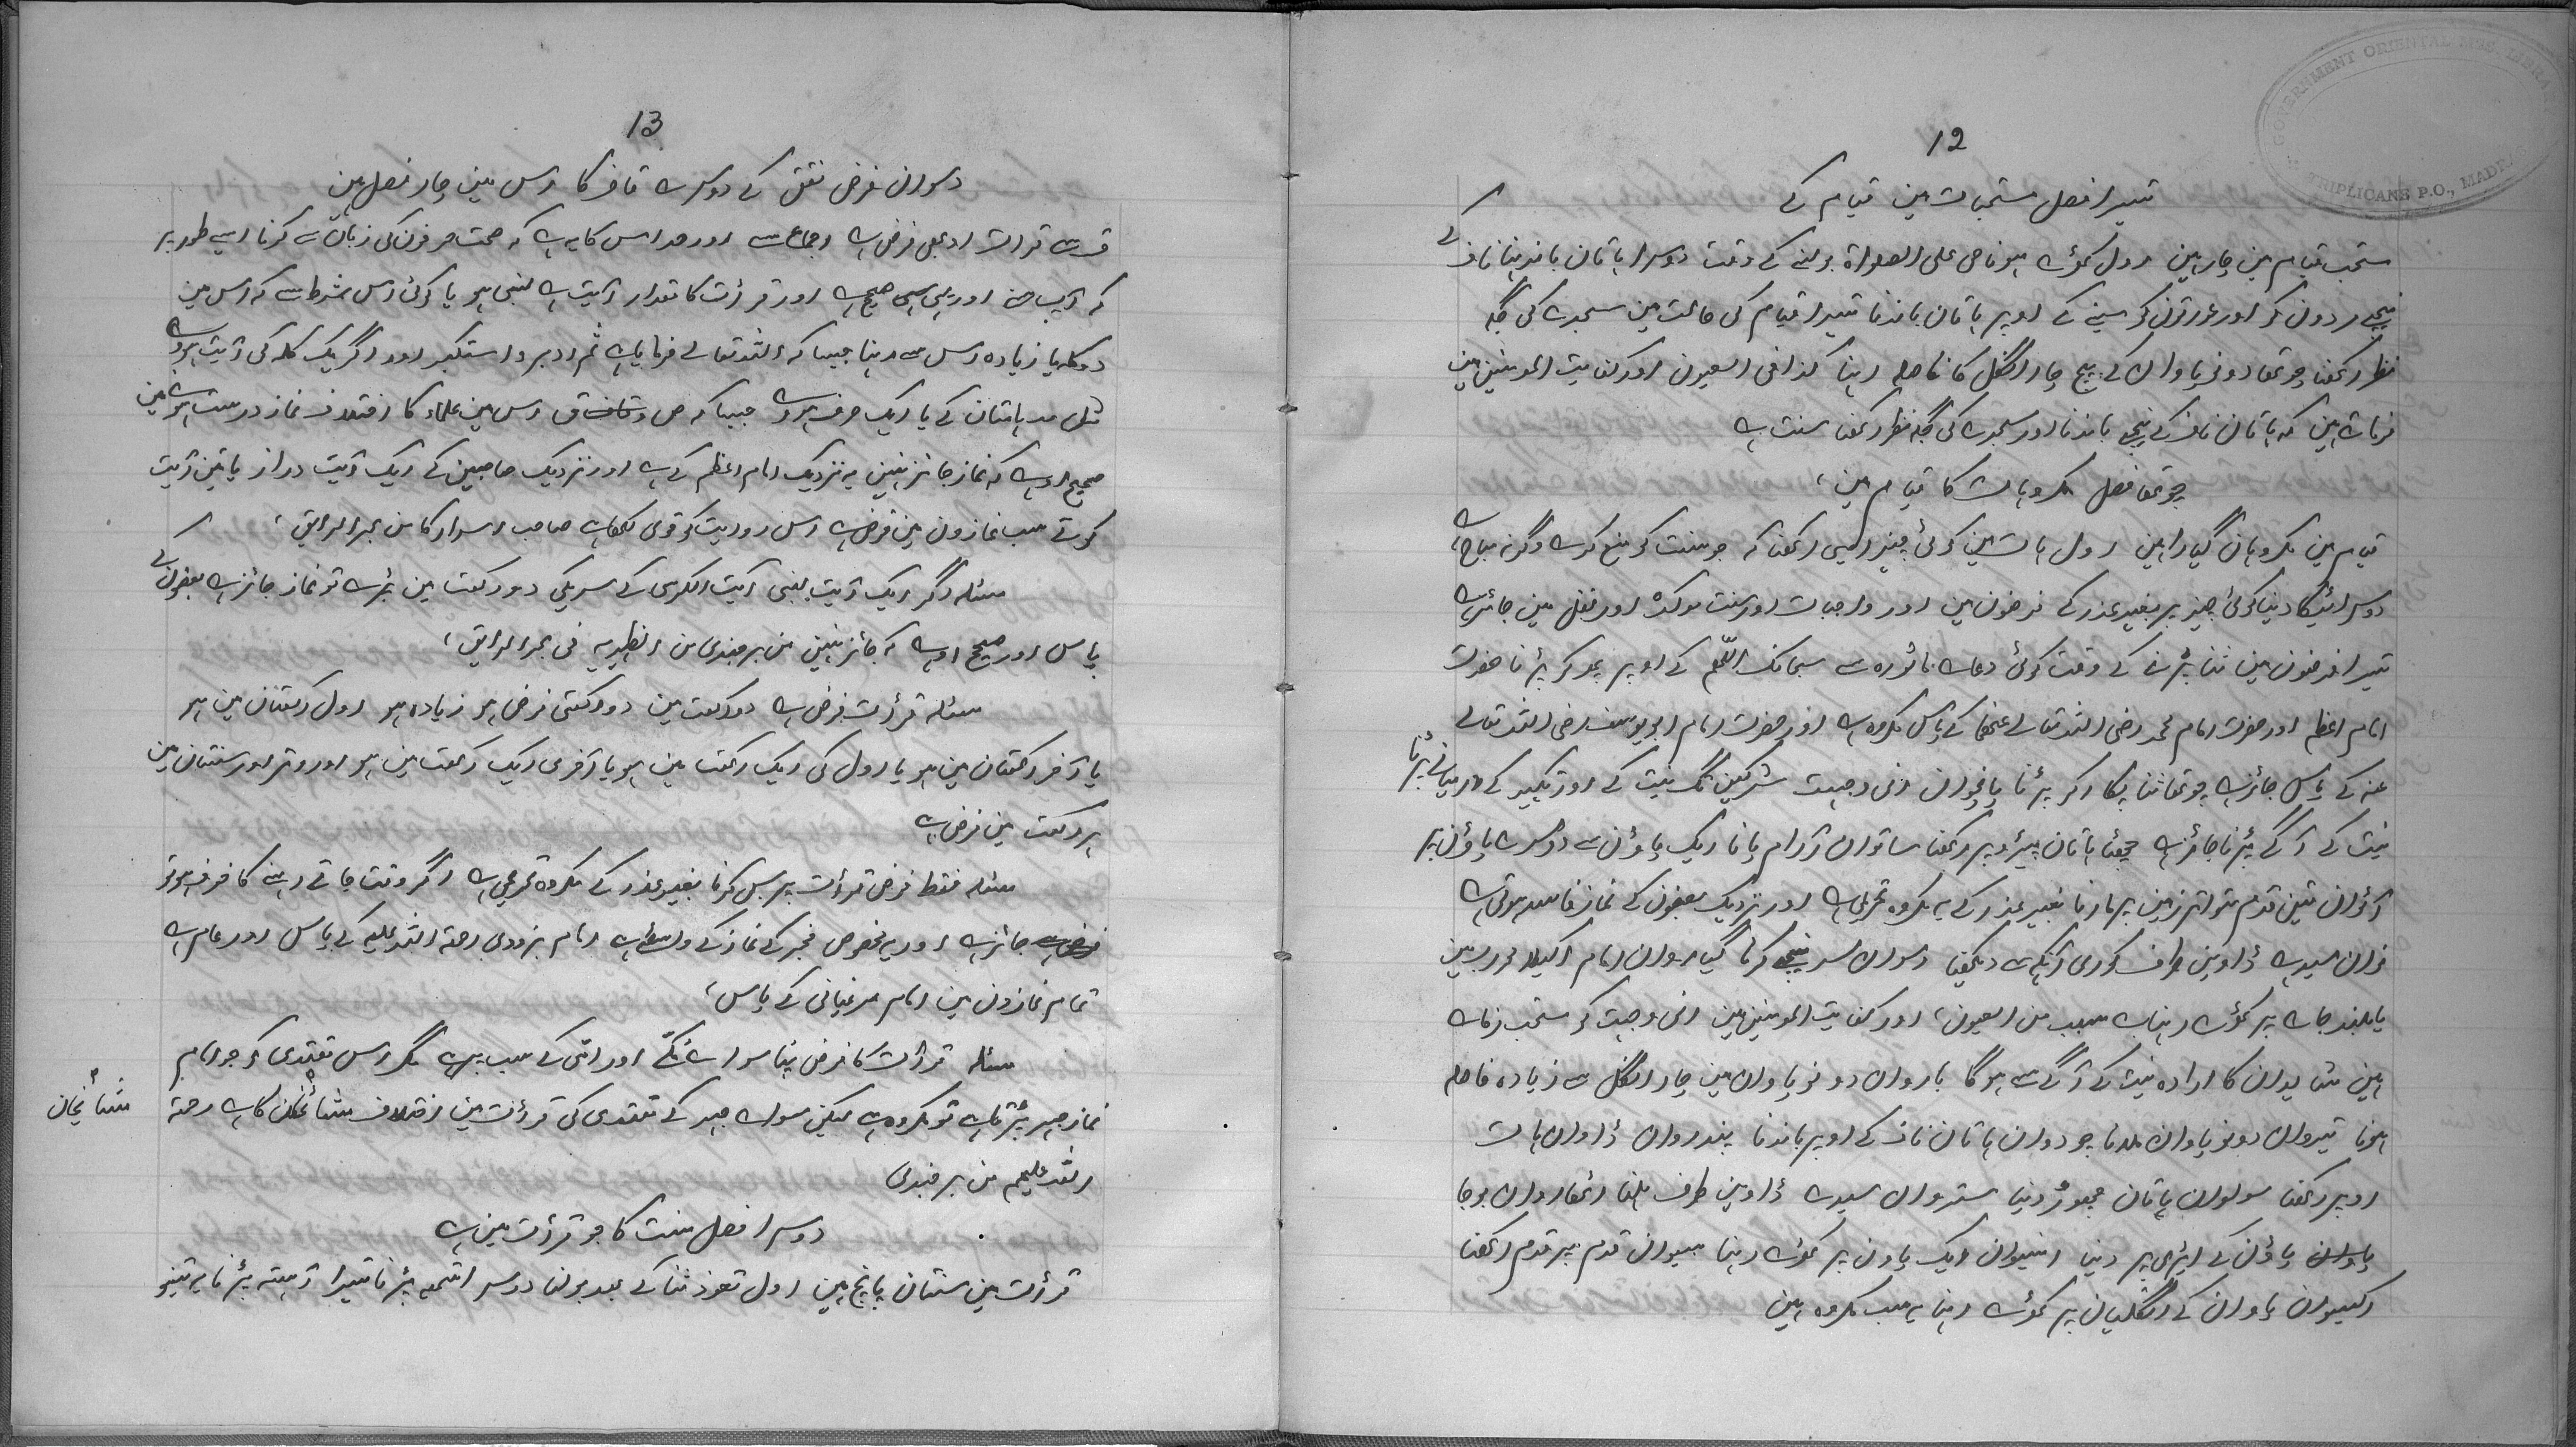 12
GOVERNMENT ORIENTAL MSS. LIBRARY
TRIPLICANE P.O., MADRAS
تیسرا فصل مستحبات مین قیام کے
مستحب قیام مین چار ہین اول کھڑے ہونا حی علی الصلواۃ بولنے کے وقت دوسرا ہاتان باندہنا ناف کے
نیچے مردون کو اور عورتون کو سینے کے اوپر ہاتان باندنا تیسرا قیام کی حالت مین سجدے کی جگہ
نظر رکھنا چوتھا دونو پاوان کے بیچ چار انگل کا فاصلہ رہنا کذا فی العیون اور کفایت المومنین مین
فرماے ہین کہ ہاتان ناف کے نیچے باندنا اور سجدے کی جگہ نظر رکھنا سنت ہے
چوتھا فصل مکروہات کا قیام مین
قیام مین مکروہان گیارا ہین اول ہات مین کوئی چیز ایسی رکھنا کہ جو سنت کو منع کرے وگرنہ مباح ہے
دوسرا ٹیکا دینا کوئی چیز پر بغیر عذر کے فرضون مین اور واجبات اور سنت موکدہ اور نفل مین جائز ہے
تیسرا فرضون مین ثنا پڑنے کے وقت کوئی دعاے ماثورہ سے سبحانک اللّٰھم کے اوپر بڑھا کر پڑنا حضرت
امام اعظم اور حضرت امام محمد رضی اللہ تعالے عنھما کے پاس مکروہ ہے اور حضرت امام ابو یوسف رضی اللہ تعالے
عنہ کے پاس جائز ہے چوتھا ثنا پکار کر پڑنا پانچوان انی وجہت مشرکین تک نیت کے اور تکبیر کے درمیانے پڑنا
نیت کے آگے پڑنا جائز ہے چھٹا ہاتان پیڑو پر رکھنا ساتوان آرام پانا ایک پاؤن سے دوسرے پاؤن پر
آٹوان تین قدم متواتر زمین پر مارنا بغیر عذر کے یہ مکروہ تحریمی ہے اور نزدیک بعضون کے نماز فاسد ہوتی ہے
نوان سیدے ڈاوین طرف کوری آنکہ سے دیکھنا دسوان سر نیچے کرنا گیاروان امام اکیلا محراب مین
یا بلند جاے پر کھڑے رہنا یہ سبب من العیون اور کفایت المومنین مین انی وجہت کو مستحب فرماے
ہین شاید ان کا ارادہ نیت کے آگے سے ہوگا باروان دونو پاوان مین چار انگل سے زیادہ فاصلہ
ہونا تیروان دونو پاوان ملانا چودوان ہاتان ناف کے اوپر باندنا پندروان ڈاوان ہات
اوپر رکھنا سولوان ہاتان چھوڑ دینا ستروان سیدے ڈاوین طرف ہلنا اٹھاروان بوجا
پاؤن کے ایڑی پر دینا انیسوان ایک پاون پر کھڑے رہنا بیسوان قدم پر قدم رکھنا
اکیسوان پاوان کے انگلیان پر کھڑے رہنا یہ سب مکروہ ہین
13
دسوان فرض نقل کے دوسرے قاف کا اس مین چار فصل ہین
ق سے قرات او بھی فرض ہے اجماع سے اور مراد اس کا یہ ہے کہ صحت حرفون کی زبان سے کرنا ایسے طور پر
کہ آپ سنے اور یہی صحیح ہے اور قرأت کا مقدار آیت ہے لنبی ہو یا کوئی اس شرط سے کہ اس مین
دو کلمہ یا زیادہ اس سے رہنا جیسا کہ اللہ تعالے فرمایا ہے ثم ادبر و استکبر اور اگر یک کلمہ کی آیت ہوے
مثل مد ہامتان کے یا ایک حرف ہوے جیسا کہ ص و ق اس مین علماء کا اختلاف نماز درست ہونے مین
صحیح او ہے کہ نماز جائز نہین یہ نزدیک امام اعظم کے ہے اور نزدیک صاحبین کے ایک آیت دراز یا تین آیت
کوتے سب نمازون مین فرض ہے اس روایت کو قوی لکھا ہے صاحب اسرار کا من بحر الرایق
مسئلہ اگر ایک آیت لنبی آیت الکرسی کے سریکی دو رکعت مین پڑے تو نماز جائز ہے بعضون کے
پاس اور صحیح او ہے کہ جائز نہین من برجندی من الظہیریہ فی بحر الرایق
مسئلہ قرأت فرض ہے دو رکعت مین دو رکعتی فرض ہو زیادہ ہو اول رکعتان مین ہو
یا آخر رکعتان مین ہو یا اول کی ایک رکعت مین ہو یا آخری ایک رکعت مین ہو اور وتر اور سنتان مین
ہر رکعت مین فرض ہے
مسئلہ فقط فرض قرأت پر بس کرنا بغیر عذر کے مکروہ تحریمی ہے اگر وقت جاتے رہنے کا خوف ہو تو
جائز ہے اور یہ مخصوص فجر کے نماز کے واسطے ہے امام بزدوی رحمۃ اللہ علیہ کے پاس اور عام ہے
تمام نمازون مین امام مرغینانی کے پاس
مسئلہ قرأت کا فرض ہنا سواے گنگے اور امّی کے سب پر ہے مگر اس مقتدی کو جو امام
نماز جہر پڑتا ہے تو مکروہ ہے لیکن سواے جہر کے مقتدی کی قرأت مین اختلاف مشائخان کا ہے رحمۃ
مشائخان
اللہ علیہم من برجندی
دوسرا فصل سنت کا جو قرأت مین ہے
قرأت مین سنتان پانچ ہین اول تعوذ ثنا کے بعد بولنا دوسرا تسمیہ پڑنا تیسرا آہستہ پڑنا یہ تینو